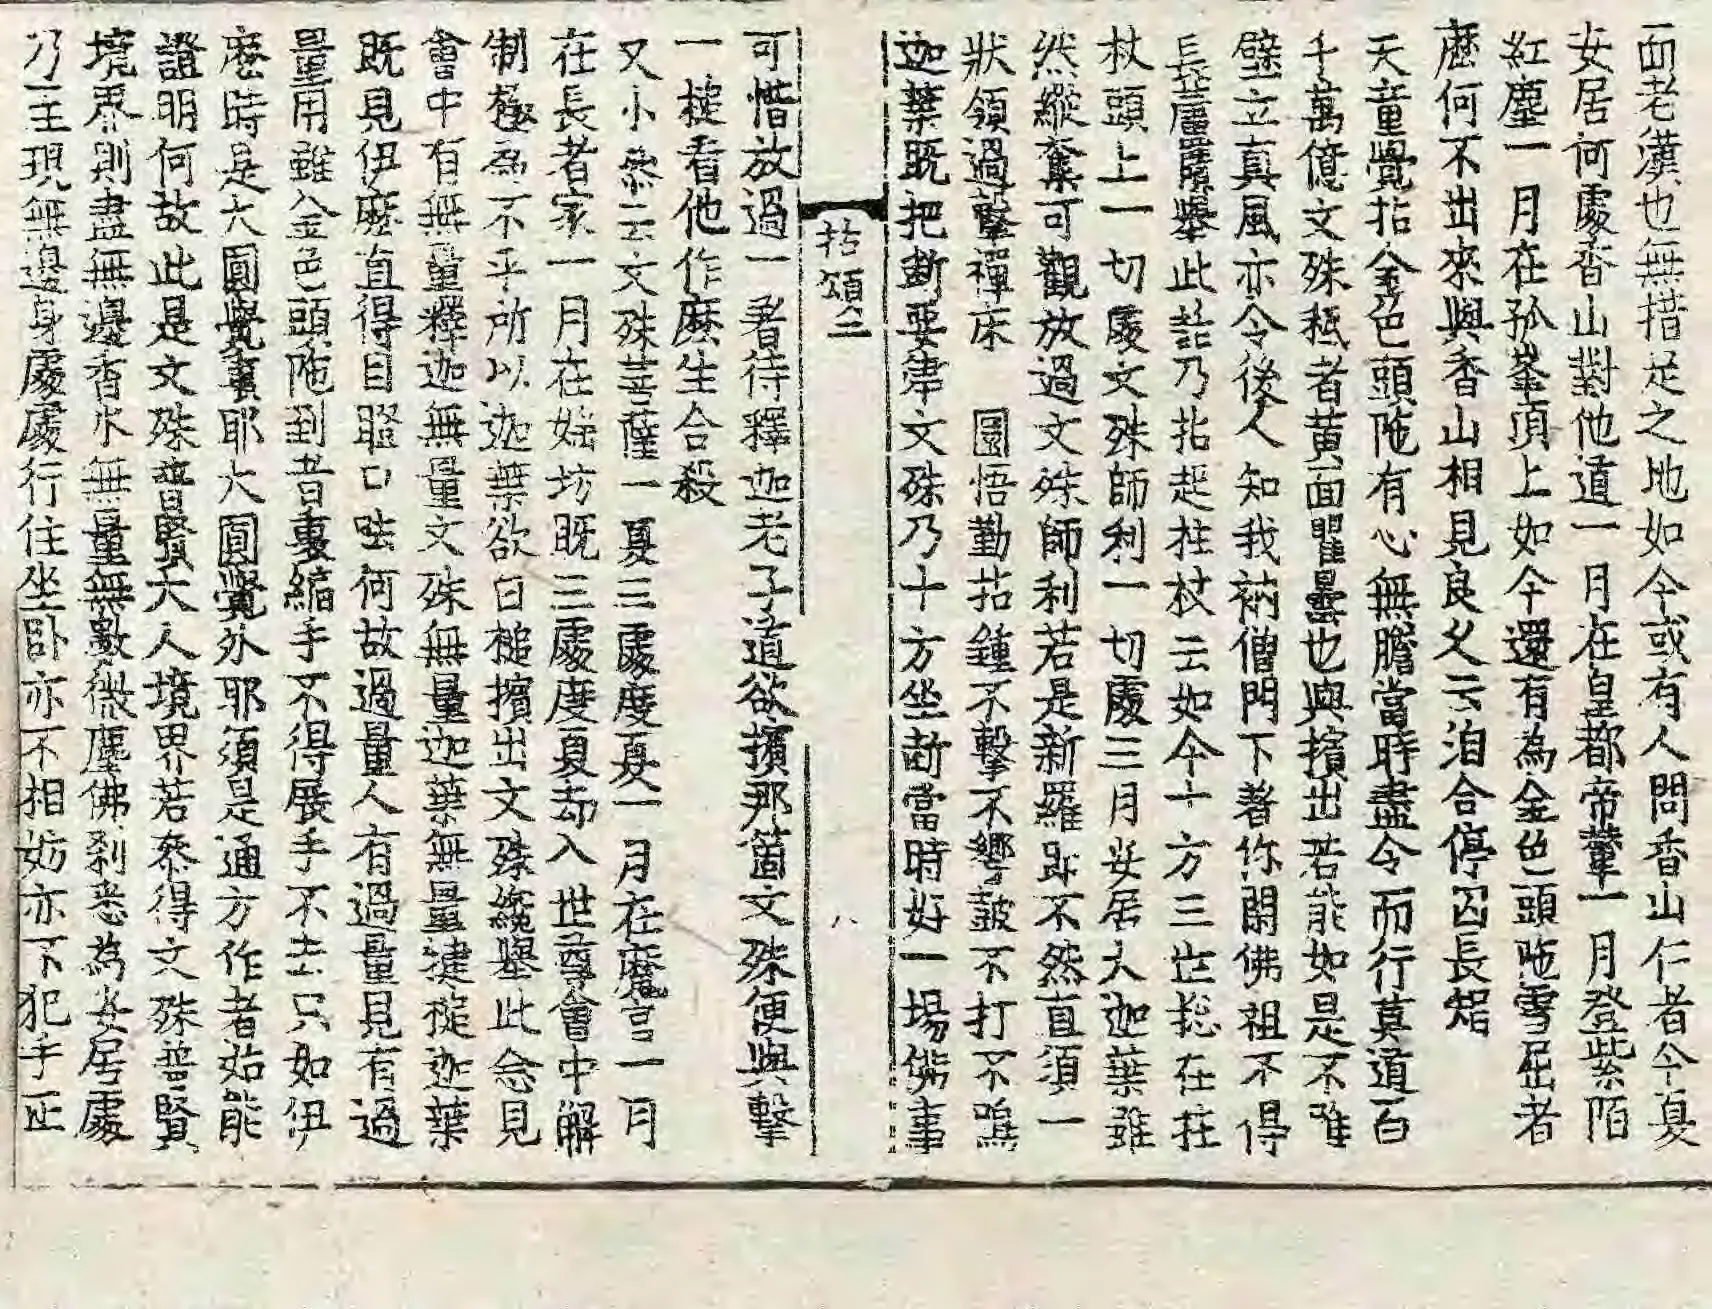 面老漢也無措足之地如今或有人問香山仁者今夏
安居何處香山對他道一月在皇都帝輦一月登紫陌
紅塵一月在孤峯頂上如今還有為金色頭陁雪屈者
麽何不出來與香山相見良久云洎合停囚長智
天童覺拈金色頭陁有心無膽當時盡令而行莫道百
千萬億文殊秖者黃面瞿曇也與擯出若能如是不唯
壁立真風亦令後人知我衲僧門下著你閑佛祖不得
長蘆賾舉此話乃拈起拄杖云如今十方三世揔在拄
杖頭上一切處文殊師利一切處三月安居大迦葉雖
然縱奪可觀放過文殊師利若是新羅即不然直須一
狀領過擊禪床　圜悟勤拈鍾不擊不響鼓不打不鳴
迦葉既把斷要津文殊乃十方坐斷當時好一場佛事
拈頌二
八
可惜放過一著待釋迦老子道欲擯那箇文殊便與擊
一槌看他作麽生合殺
又小叅云文殊菩薩一夏三處度夏一月在魔宮一月
在長者家一月在婬坊既三處度夏却入世尊會中解
制極為不平所以迦葉欲白槌擯出文殊纔舉此念見
會中有無量釋迦無量文殊無量迦葉無量揵槌迦葉
既見伊麽直得目瞪口呿何故過量人有過量見有過
量用雖金色頭陁到者裏縮手不得展手不去只如伊
麽時是大圓覺裏耶大圓覺外耶須是通方作者始能
證明何故此是文殊普賢大人境界若叅得文殊普賢
境界則盡無邊香水無量無數微塵佛刹悉為安居處
乃至現無邊身處處行住坐卧亦不相妨亦不犯手正